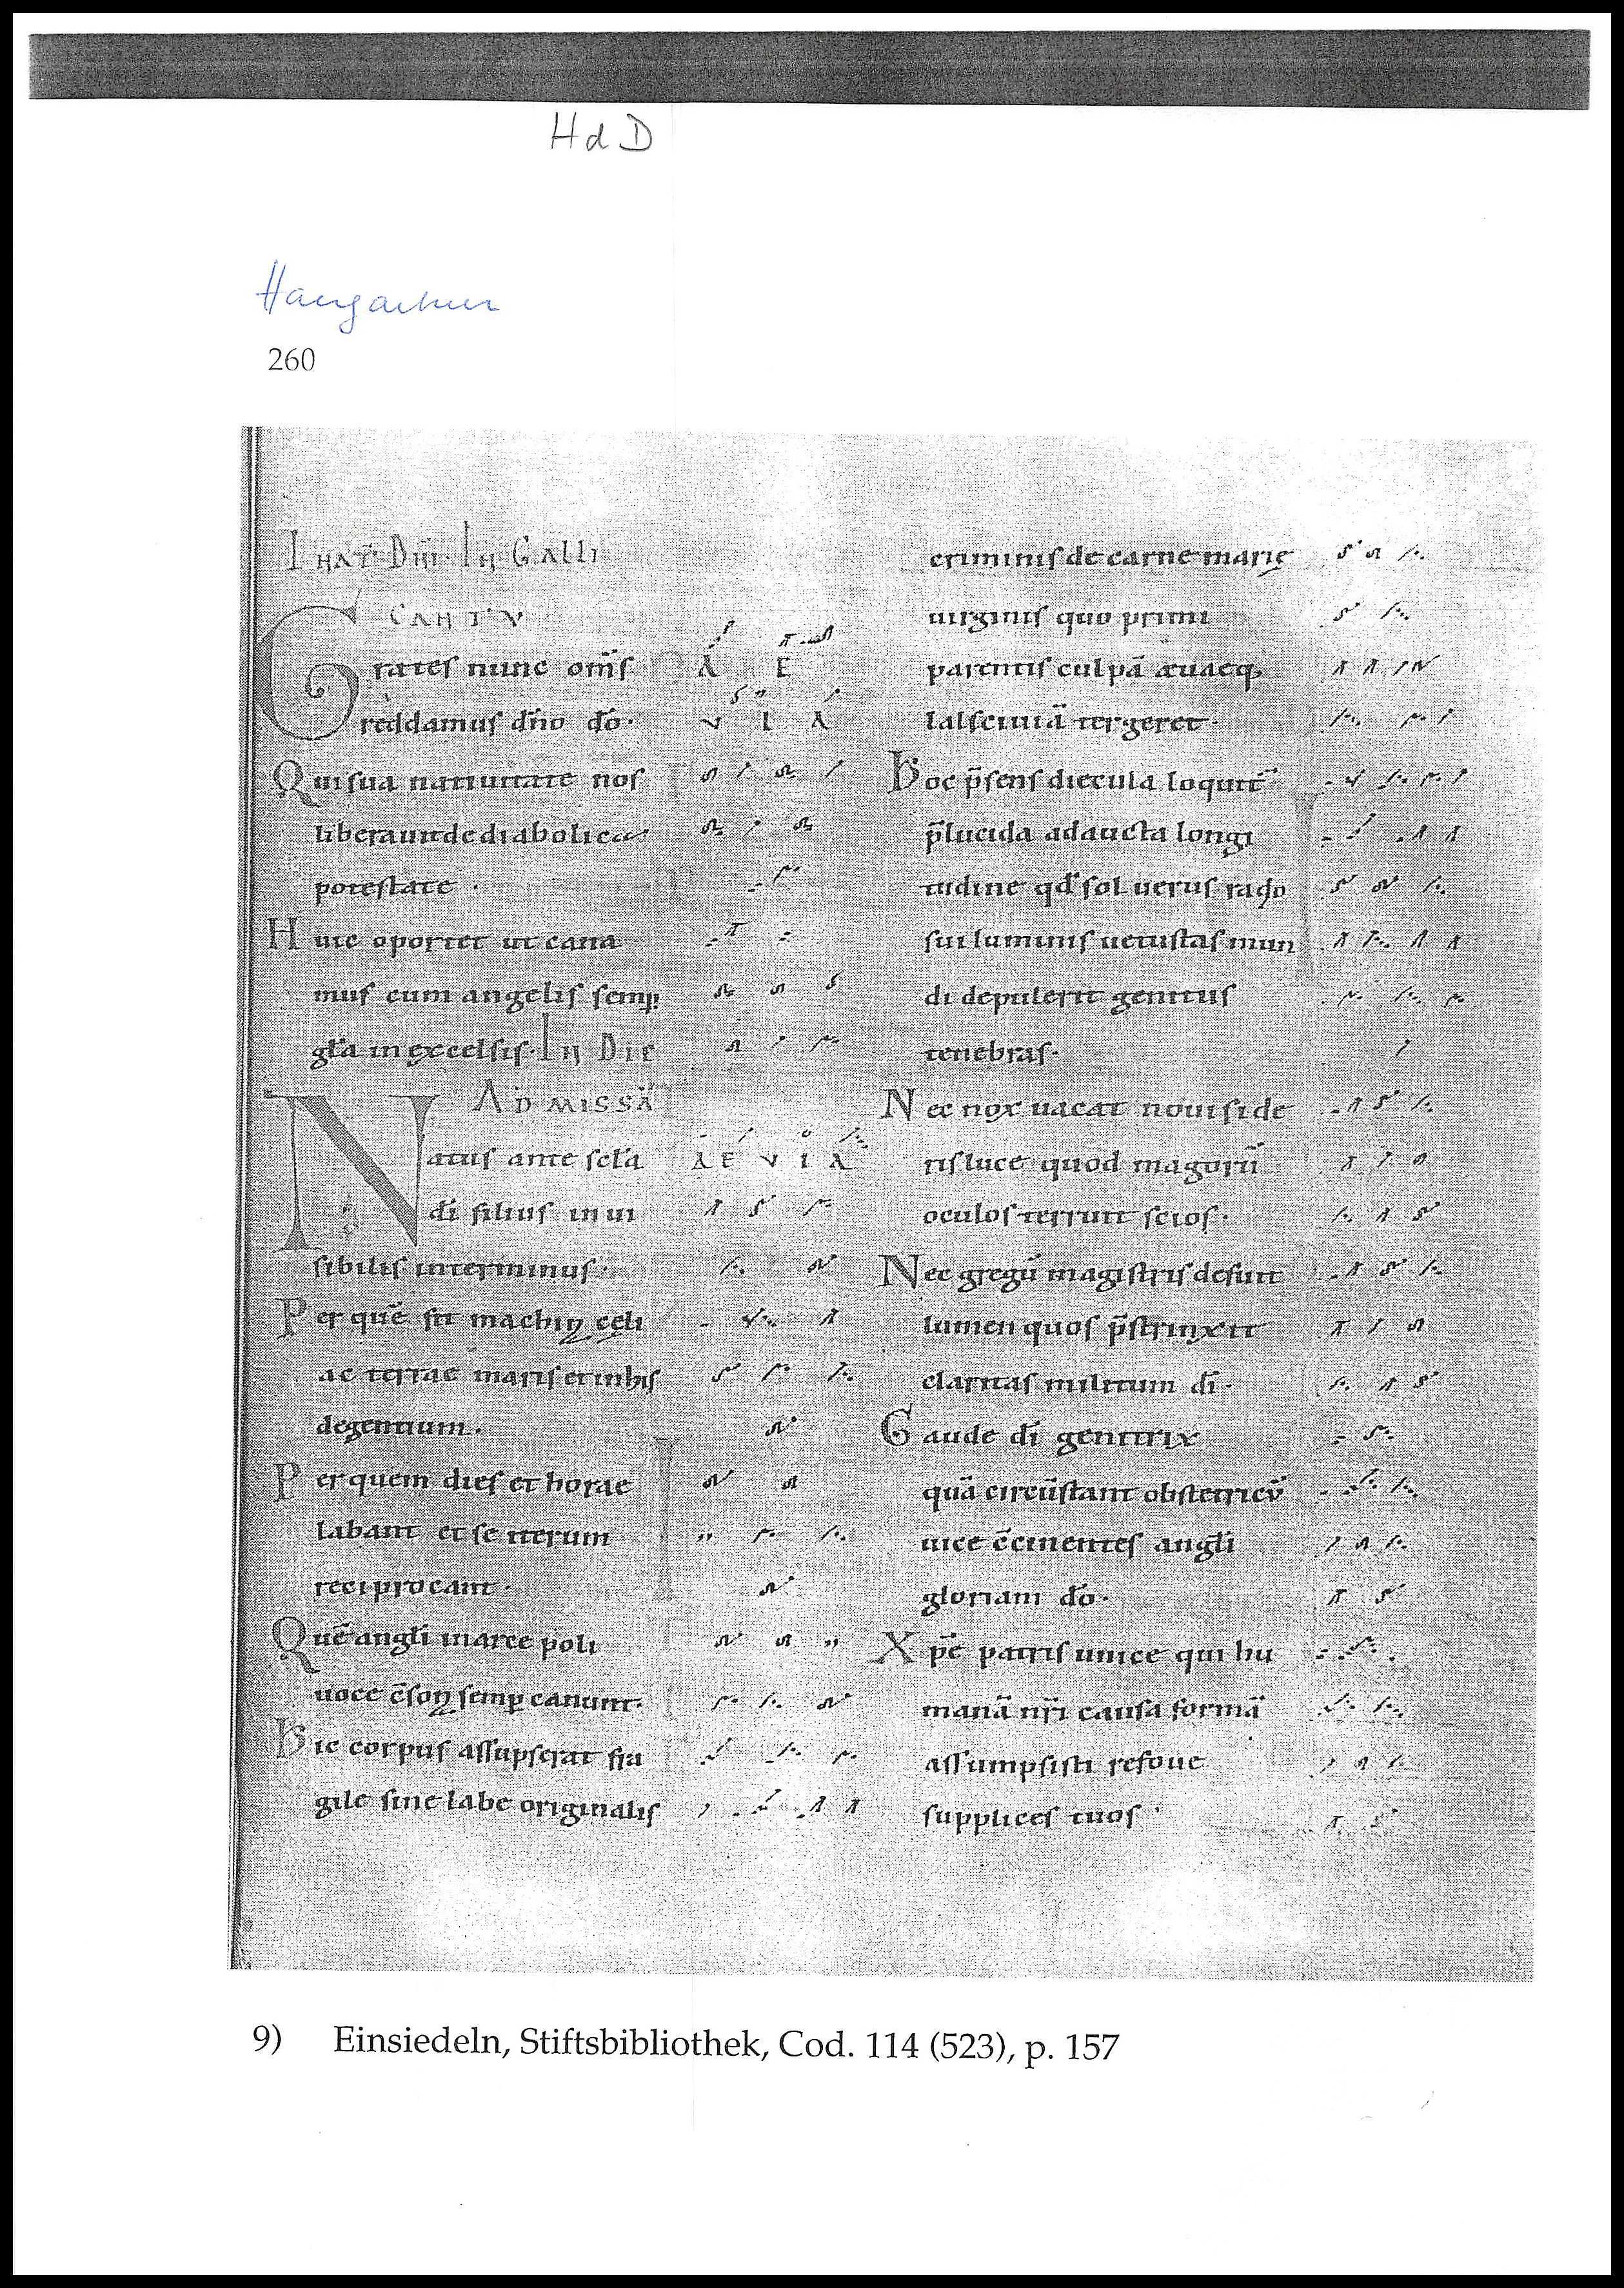 H d D
260
IN NAT. DNI. IN GALLI
CANTV
Grates nunc om̄s A E
reddamus dn̄o do. V I A
Qui sua natiuitate nos
liberauit de diabolica
potestate .
Huic oportet ut cana
mus cum angelis semp
gl̄a in excelsis. IN DIE
AD MISSĀ
Natus ante scl̄a A E V I A
dī filius inui
sibilis interminus.
Per quē fit machina cęli
ac terrae maris et in his
degentium.
Per quem dies et horae
labant et se iterum
reciprocant.
Quē angl̄i in arce poli
uoce c̄sona semp canunt.
Hic corpus assupserat fra
gile sine labe originalis
criminis de carne marię
uirginis quo primi
parentis culpā æuaeq;
lasciuiā tergeret.
Hoc p̄sens diecula loquit̄
p̄lucida adaucta longi
tudine qd̄ sol uerus radio
sui luminis uetustas mun
di depulerit genitus
tenebras.
Nec nox uacat noui side
ris luce quod magorū
oculos terruit scios.
Nec gregū magistris defuit
lumen quos p̄strinxit
claritas militum dī.
Gaude dī genitrix
quā circūstant obstetricū
uice c̄cinentes angl̄i
gloriam dō.
Xp̄e patris unice qui hu
manā nr̄i causa formā
assumpsisti refoue
supplices tuos.
9) Einsiedeln, Stiftsbibliothek, Cod. 114 (523), p. 157